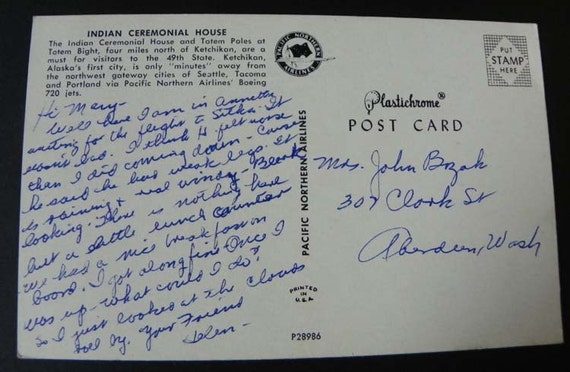 INDIAN CEREMONIAL HOUSE
The Indian Ceremonial House and Totem Poles at
Totem Bight, four miles north of Ketchikan, are a
must for visitors to the 49th State. Ketchikan,
Alaska's first city, is only "minutes" away from
the northwest gateway cities of Seattle, Tacoma
and Portland via Pacific Northern Airlines' Boeing
720 jets.
Hi Mary-
Well here I am in Annette
waiting for the flight to Sitka. It
wasn't bad. I think H felt worse
than I did coming down - Cause
he said he had weak legs. It
is raining & real windy - Bleak
looking. There is nothing here
but a little lunch counter
We had a nice breakfast on
board. I got along fine. Once I
was up - what could I do?
So I just looked at the clouds
roll by. Your Friend
Helen-
PACIFIC NORTHERN
AIRLINES
PACIFIC NORTHERN AIRLINES
PUT
STAMP
HERE
Plastichrome®
POST CARD
Mrs. John Bozak
307 Clark St
Aberdeen, Wash
PRINTED IN
U.S.A.
P28986